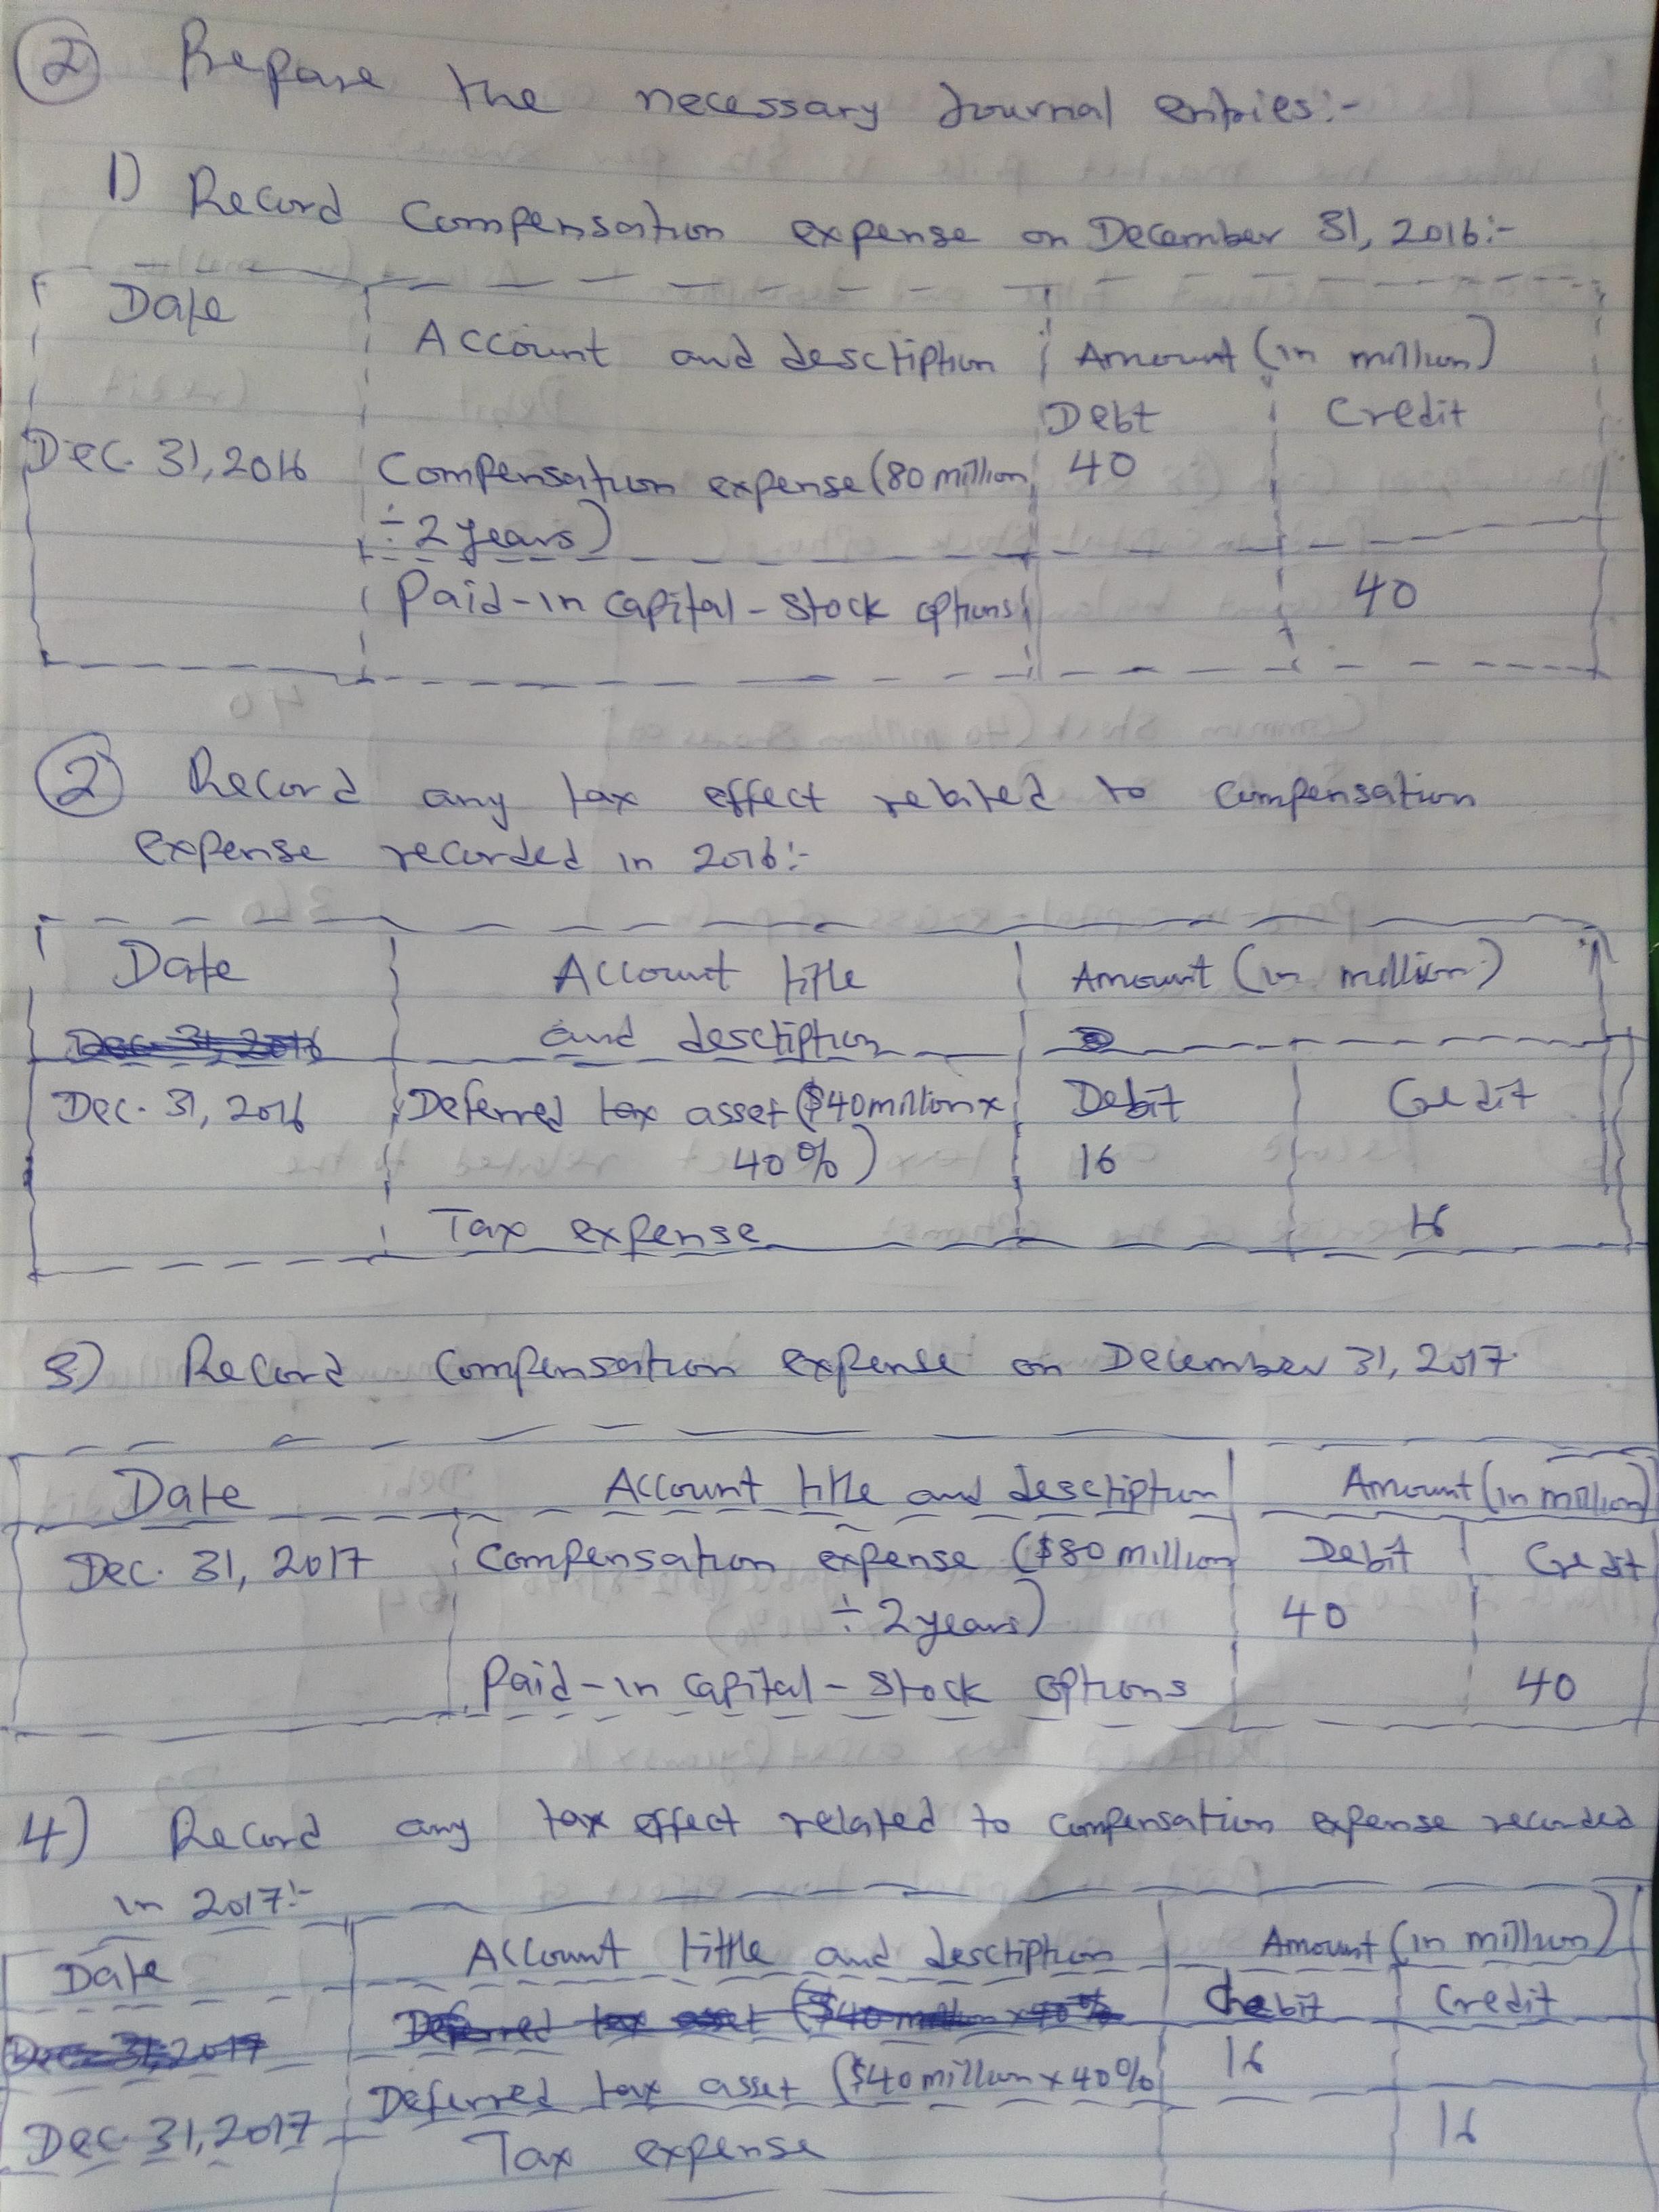 ② Prepare the necessary Journal entries:-
1) Record Compensation expense on December 31, 2016:-
Date
Account and desctiption Amount (in million)
Debt Credit
Dec. 31, 2016 Compensation expense (80 million 40
÷ 2 years)
Paid-in capital - stock options 40
② Record any tax effect related to compensation
expense recorded in 2016:-
Date Account title Amount (in million)
and desctiption
Dec. 31, 2016 Deferred tax asset ($40 million x Debit Credit
40%) 16
Tax expense 16
3) Record Compensation expense on December 31, 2017
Date Account title and desctiption Amount (in million)
Dec. 31, 2017 Compensation expense ($80 million Debit Credit
÷ 2 years) 40
Paid-in capital - stock options 40
4) Record any tax effect related to compensation expense recorded
in 2017:-
Date Account tittle and desctiption Amount (in million)
Debit Credit
Deferred tax asset ($40 million x 40% 16
Dec. 31, 2017 Tax expense 16